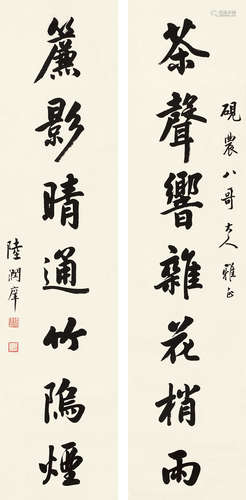 硯農八哥大人雅正
茶聲響雜花梢雨
簾影晴通竹隝煙
陸潤庠